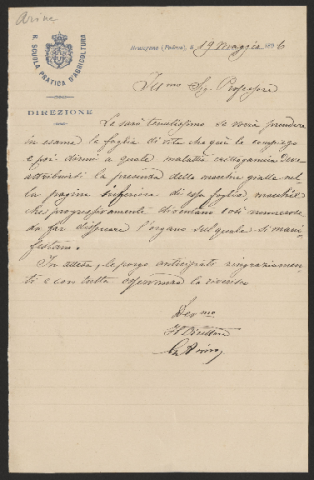 Arina
R. SCUOLA PRATICA D'AGRICOLTURA
DIREZIONE
Brusegana (Padova), a 19 Maggio 1896
Ill.mo Sig. Professore
Le sarò tenutissimo se vorrà prendere
in esame la foglia di vite che quì le compiego
e poi dirmi a quale malattia crittogamica devo
attribuirsi la presenza delle macchie gialle nel-
la pagina inferiore di essa foglia, macchie
che progressivamente diventano così numerose
da far disseccare l'organo sul quale si mani-
festano.
In attesa, le porgo anticipati ringraziamen-
ti e con tutta osservanza la riverisco
Dev.mo
Il Direttore